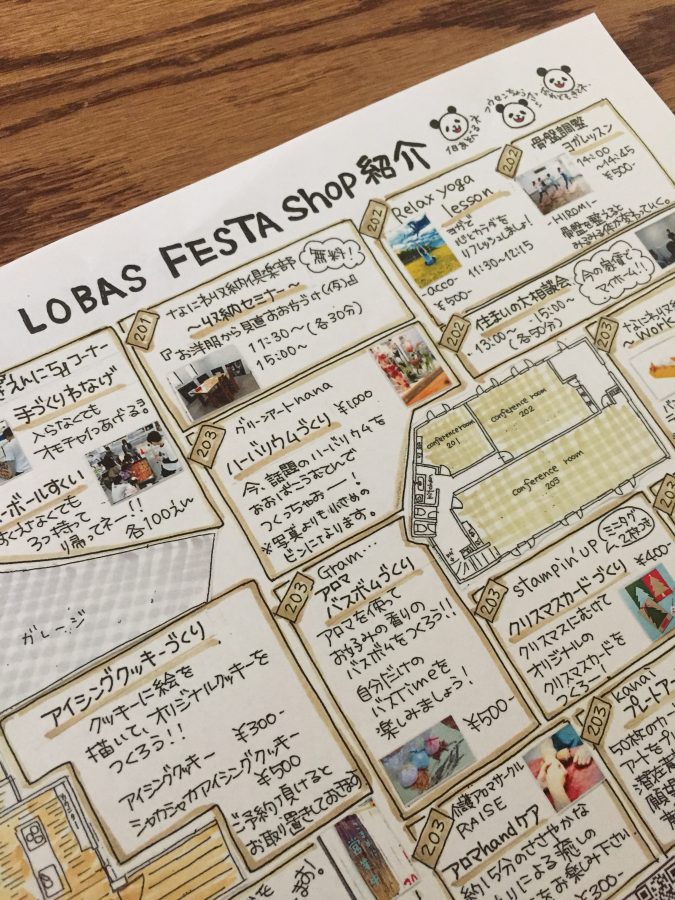 LOBAS FESTA Shop 紹介
202
Relax yoga
lesson
ヨガで
心とカラダを
リフレッシュしましょ!
-acco-
11:30~12:15
¥500-
202
骨盤調整
ヨガレッスン
14:00
~14:45
¥500-
-HIROMI-
骨盤を整えると
みるみる体が変わっていく。
201
なにわ収納倶楽部
無料!
~収納セミナー~
『お洋服から見直すおおちづけ(仮)』
11:30~(各30分)
15:00~
202
住まいの大相談会
今の敷値で
マイホーム!!
13:00~15:00~
(各50分)
203
なにわ収
~Work
えんにち』コーナー
手づくりわなげ
入らなくても
オモチャ1つあげるヨ。
ーボールすくい
すくえなくても
3つ持って
帰ってネー!!
各100えん
203
グリーンアートhana
ハーバリウムづくり
¥1,000
今、話題のハーバリウムを
つくっちゃおー!
※写真よりも小さめの
ビンになります。
conference room
201
conference room
202
conference room
203
kitchen
ガレージ
203
Gram...
アロマ
バスボムづくり
アロマを使って
お好みの香りの
バスボムをつくろう!!
自分だけの
バスTimeを
楽しみましょう!
¥500-
203
stampin' UP
クリスマスカードづくり
¥400-
クリスマスにむけて
オリジナルの
クリスマスカードを
つくろー!
アイシングクッキーづくり
クッキーに絵を
描いて、オリジナルクッキーを
つくろう!!
アイシングクッキー ¥300-
シャカシャカアイシングクッキー ¥500
ご予約頂けると
お取り置きしておきます
203
介護アロマサークル
RAISE
アロマhandケア
約15分のささやかな
による癒しの
をお楽しみ下さい
¥300-
203
kanai
プレートアー
50枚のカー
アートをプ
潜在
ます!